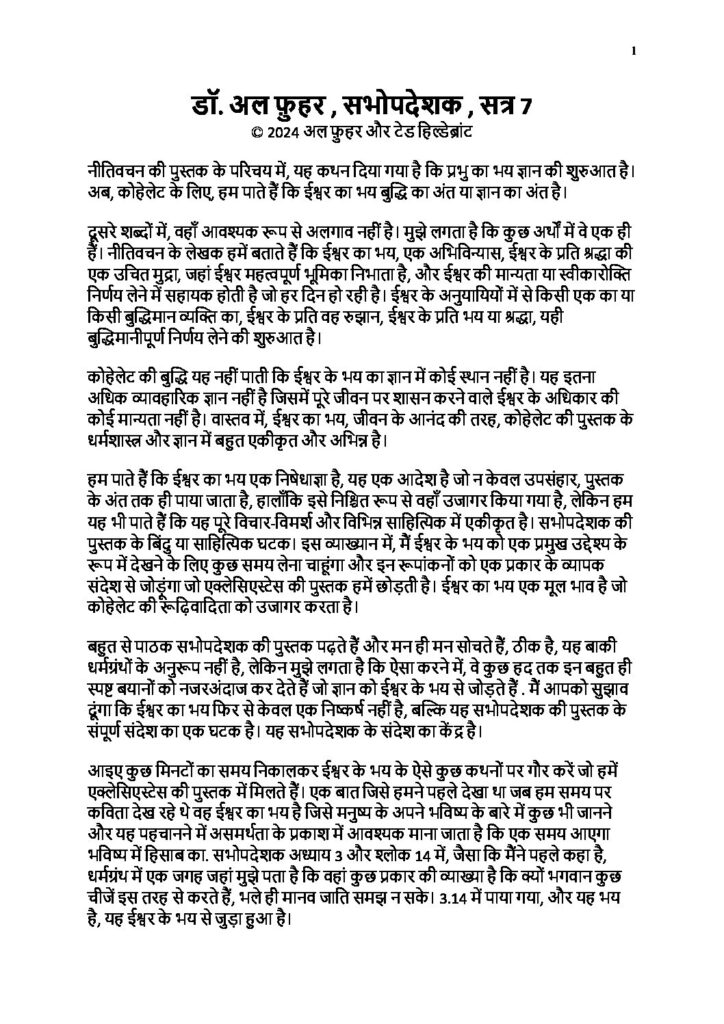 1
डॉ. अल फ़ुहर , सभोपदेशक , सत्र 7
© 2024 अल फ़ुहर और टेड हिल्डेब्रांट
नीतिवचन की पुस्तक के परिचय में, यह कथन दिया गया है कि प्रभु का भय ज्ञान की शुरुआत है।
अब, कोहेलेट के लिए, हम पाते हैं कि ईश्वर का भय बुद्धि का अंत या ज्ञान का अंत है।
दूसरे शब्दों में, वहाँ आवश्यक रूप से अलगाव नहीं है। मुझे लगता है कि कुछ अर्थों में वे एक ही
हैं। नीतिवचन के लेखक हमें बताते हैं कि ईश्वर का भय, एक अभिविन्यास, ईश्वर के प्रति श्रद्धा की
एक उचित मुद्रा, जहां ईश्वर महत्वपूर्ण भूमिका निभाता है, और ईश्वर की मान्यता या स्वीकारोक्ति
निर्णय लेने में सहायक होती है जो हर दिन हो रही है। ईश्वर के अनुयायियों में से किसी एक का या
किसी बुद्धिमान व्यक्ति का, ईश्वर के प्रति वह रुझान, ईश्वर के प्रति भय या श्रद्धा, यही
बुद्धिमानीपूर्ण निर्णय लेने की शुरुआत है।
कोहेलेट की बुद्धि यह नहीं पाती कि ईश्वर के भय का ज्ञान में कोई स्थान नहीं है। यह इतना
अधिक व्यावहारिक ज्ञान नहीं है जिसमें पूरे जीवन पर शासन करने वाले ईश्वर के अधिकार की
कोई मान्यता नहीं है। वास्तव में, ईश्वर का भय, जीवन के आनंद की तरह, कोहेलेट की पुस्तक के
धर्मशास्त्र और ज्ञान में बहुत एकीकृत और अभिन्न है।
हम पाते हैं कि ईश्वर का भय एक निषेधाज्ञा है, यह एक आदेश है जो न केवल उपसंहार, पुस्तक
के अंत तक ही पाया जाता है, हालाँकि इसे निश्चित रूप से वहाँ उजागर किया गया है, लेकिन हम
यह भी पाते हैं कि यह पूरे विचार-विमर्श और विभिन्न साहित्यिक में एकीकृत है। सभोपदेशक की
पुस्तक के बिंदु या साहित्यिक घटक। इस व्याख्यान में, मैं ईश्वर के भय को एक प्रमुख उद्देश्य के
रूप में देखने के लिए कुछ समय लेना चाहूंगा और इन रूपांकनों को एक प्रकार के व्यापक
संदेश से जोड़ूंगा जो एक्लेसिएस्टेस की पुस्तक हमें छोड़ती है। ईश्वर का भय एक मूल भाव है जो
कोहेलेट की रूढ़िवादिता को उजागर करता है।
बहुत से पाठक सभोपदेशक की पुस्तक पढ़ते हैं और मन ही मन सोचते हैं, ठीक है, यह बाकी
धर्मग्रंथों के अनुरूप नहीं है, लेकिन मुझे लगता है कि ऐसा करने में, वे कुछ हद तक इन बहुत ही
स्पष्ट बयानों को नजरअंदाज कर देते हैं जो ज्ञान को ईश्वर के भय से जोड़ते हैं . मैं आपको सुझाव
दूंगा कि ईश्वर का भय फिर से केवल एक निष्कर्ष नहीं है, बल्कि यह सभोपदेशक की पुस्तक के
संपूर्ण संदेश का एक घटक है। यह सभोपदेशक के संदेश का केंद्र है।
आइए कुछ मिनटों का समय निकालकर ईश्वर के भय के ऐसे कुछ कथनों पर गौर करें जो हमें
एक्लेसिएस्टेस की पुस्तक में मिलते हैं। एक बात जिसे हमने पहले देखा था जब हम समय पर
कविता देख रहे थे वह ईश्वर का भय है जिसे मनुष्य के अपने भविष्य के बारे में कुछ भी जानने
और यह पहचानने में असमर्थता के प्रकाश में आवश्यक माना जाता है कि एक समय आएगा
भविष्य में हिसाब का. सभोपदेशक अध्याय 3 और श्लोक 14 में, जैसा कि मैंने पहले कहा है,
धर्मग्रंथ में एक जगह जहां मुझे पता है कि वहां कुछ प्रकार की व्याख्या है कि क्यों भगवान कुछ
चीजें इस तरह से करते हैं, भले ही मानव जाति समझ न सके। 3.14 में पाया गया, और यह भय
है, यह ईश्वर के भय से जुड़ा हुआ है।